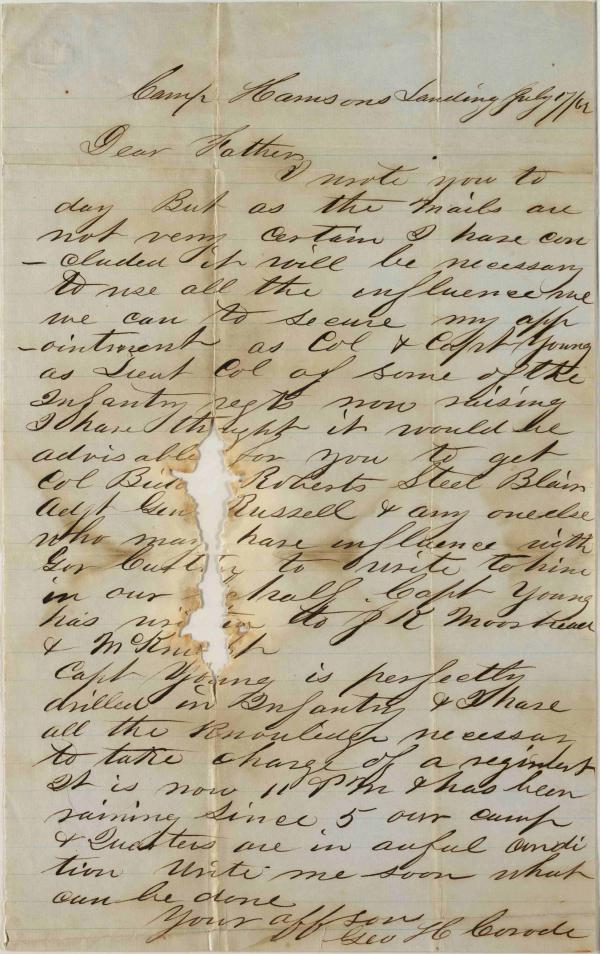 Camp Harrisons Landing July 17/62
Dear Father
I wrote you to
day But as the mails are
not very certain I have con
-cluded it will be necessary
to use all the influence me
we can to secure my app
-ointment as Col & Capt Young
as Lieut Col of some of the
Infantry regts now raising
I have thought it would be
advisable for you to get
Col Roberts Steel Blair
Adjt Gen Russell & any one else
who may have influence with
Gov to write to him
in our Capt Young
has to J K Moorhead
&
Capt Young is perfectly
drilled in Infantry & I have
all the knowledge necessary
to take charge of a regiment
It is now 11 P m & has been
raining since 5 our camp
& Quarters are in awful condi
tion Write me soon what
can be done
Your aff son
Geo H Covode